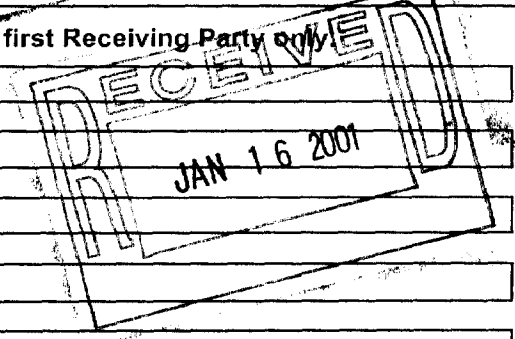 first Receiving Party only.
RECEIVED
JAN 16 2001